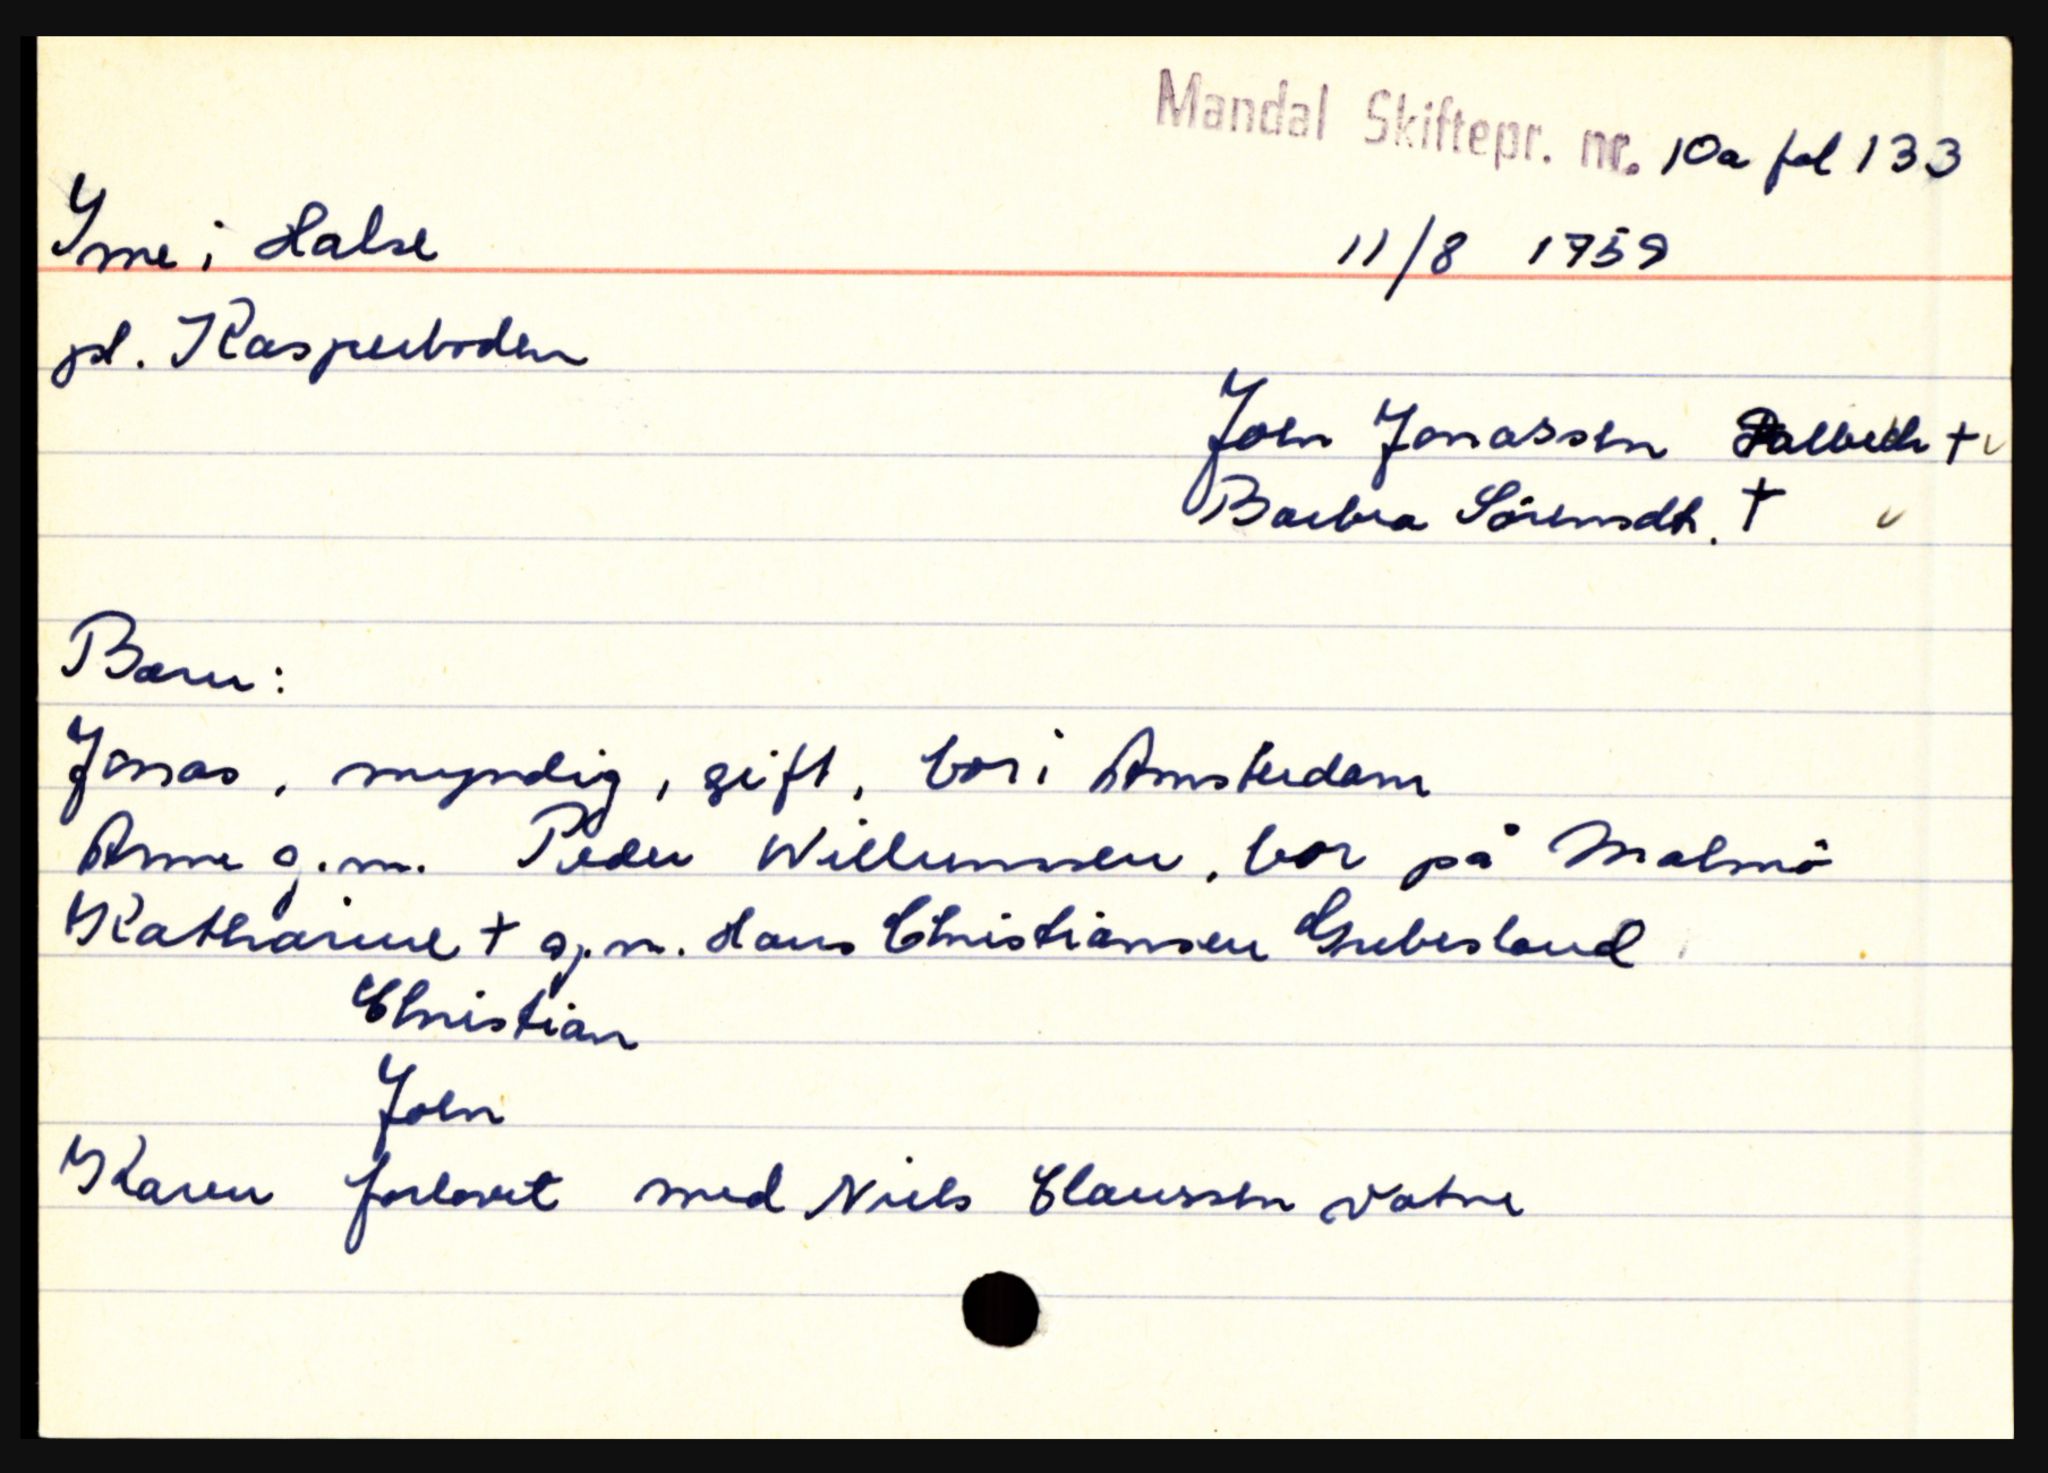 Mandal Skiftepr. nr. 10a fol 133
Yme i Halse 11/8 1759
pl. Kasperboden
Joen Jonassen †
Barbra Sörensdtr. †
Barn:
Jonas, myndig, gift, bor i Amsterdam
Anne g.m. Peder Willumssen, bor på Malmö
Katharine † g.m. Hans Christiansen Grubesland
Christian
Joen
Karen forlovet med Niels Claussen Vatne